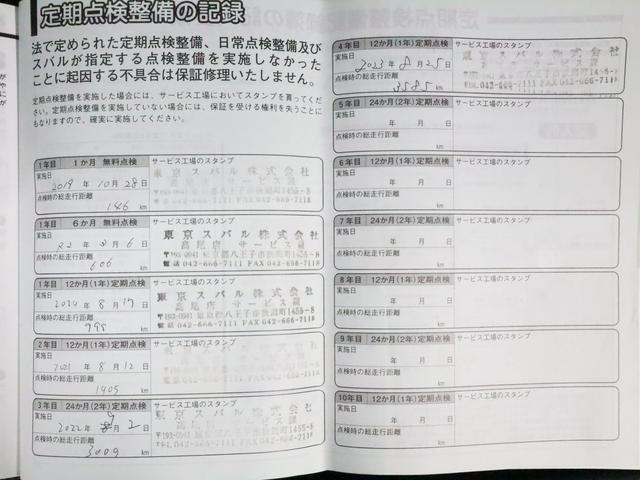 定期点検整備の記録
法で定められた定期点検整備、日常点検整備及び
スバルが指定する点検整備を実施しなかった
ことに起因する不具合は保証修理いたしません。
定期点検整備を実施した場合には、サービス工場においてスタンプを貰ってくだ
さい。定期点検整備を実施していない場合には、保証を受ける権利を失うことに
もなりますので、確実に実施してください。
1年目 1か月 無料点検 サービス工場のスタンプ
実施日
2019年 10月 28日
東京スバル株式会社
点検時の総走行距離
146 km
1年目 6か月 無料点検 サービス工場のスタンプ
実施日
R2年 3月 6日
東京スバル株式会社
高尾店 サービス課
点検時の総走行距離
606 km
電話 042-666-7111 FAX 042-666-7131
1年目 12か月(1年)定期点検 サービス工場のスタンプ
実施日
8月 19日
東京スバル株式会社
高尾店 サービス課
点検時の総走行距離
995 km
2年目 12か月(1年)定期点検 サービス工場のスタンプ
実施日
2021年 8月 12日
点検時の総走行距離
1405 km
3年目 24か月(2年)定期点検 サービス工場のスタンプ
実施日
2022年 9月 2日
東京スバル株式会社
点検時の総走行距離
3009 km
4年目 12か月(1年)定期点検 サービス工場のスタンプ
実施日
2023年 8月 25日
東京スバル株式会社
点検時の総走行距離
3585 km
5年目 24か月(2年)定期点検 サービス工場のスタンプ
実施日
年 月 日
点検時の総走行距離
km
6年目 12か月(1年)定期点検 サービス工場のスタンプ
実施日
年 月 日
点検時の総走行距離
km
7年目 24か月(2年)定期点検 サービス工場のスタンプ
実施日
年 月 日
点検時の総走行距離
km
8年目 12か月(1年)定期点検 サービス工場のスタンプ
実施日
年 月 日
点検時の総走行距離
km
9年目 24か月(2年)定期点検 サービス工場のスタンプ
実施日
年 月 日
点検時の総走行距離
km
10年目 12か月(1年)定期点検 サービス工場のスタンプ
実施日
年 月 日
点検時の総走行距離
km